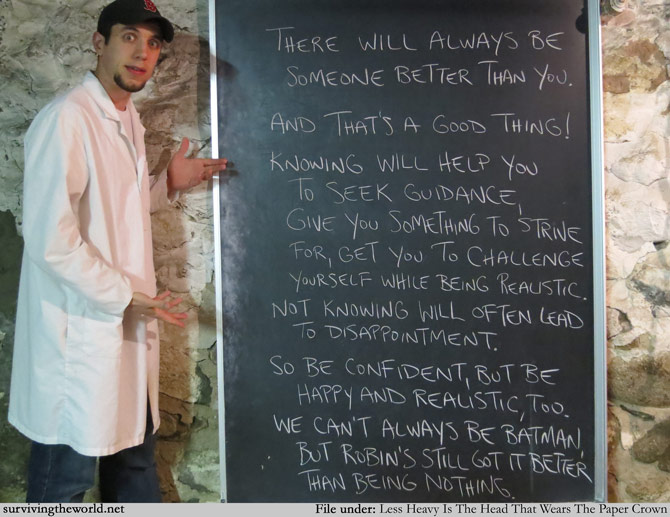 THERE WILL ALWAYS BE
SOMEONE BETTER THAN YOU.
AND THAT'S A GOOD THING!
KNOWING WILL HELP YOU
TO SEEK GUIDANCE,
GIVE YOU SOMETHING TO STRIVE
FOR, GET YOU TO CHALLENGE
YOURSELF WHILE BEING REALISTIC.
NOT KNOWING WILL OFTEN LEAD
TO DISAPPOINTMENT.
SO BE CONFIDENT, BUT BE
HAPPY AND REALISTIC, TOO.
WE CAN'T ALWAYS BE BATMAN,
BUT ROBIN'S STILL GOT IT BETTER
THAN BEING NOTHING.
survivingtheworld.net File under: Less Heavy Is The Head That Wears The Paper Crown